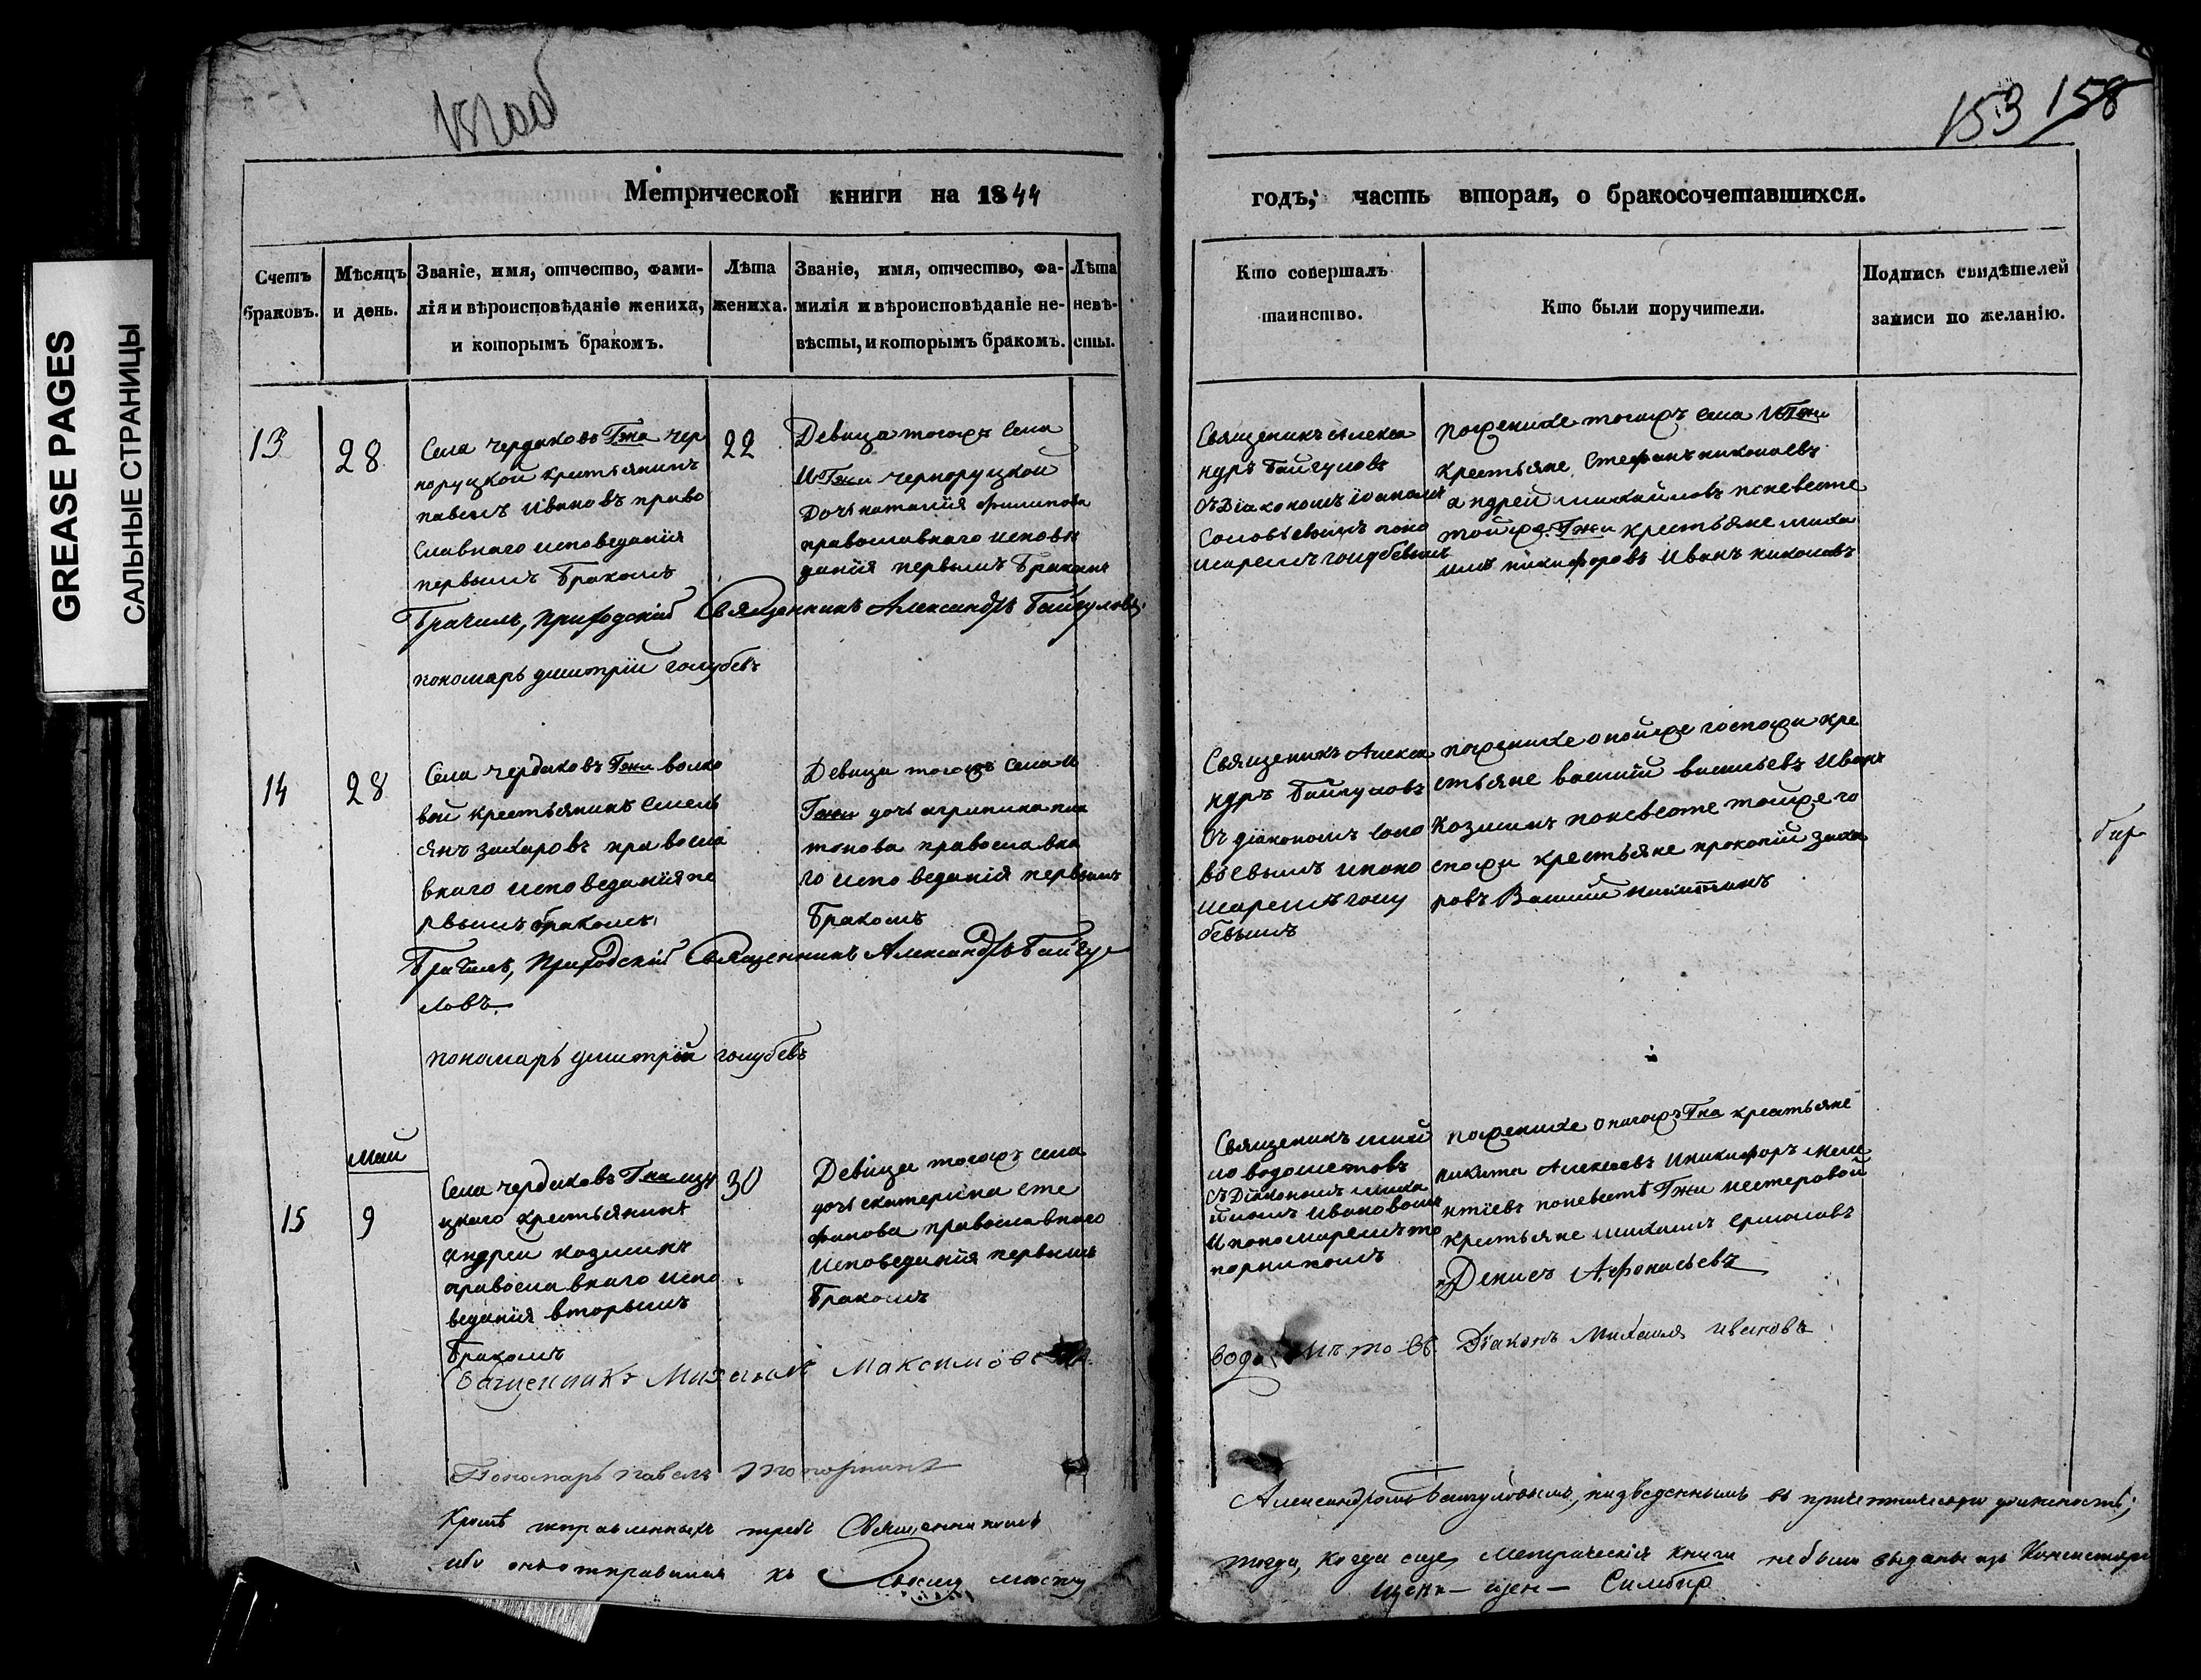 GREASE PAGES
САЛЬНЫЕ СТРАНИЦЫ
153 158
Метрической книги на 1844
годъ, часть вторая, о бракосочетавшихся.
Счетъ браковъ.
Мѣсяцъ и день.
Званіе, имя, отчество, фами-
лія и вѣроисповѣданіе жениха,
и которымъ бракомъ.
Лѣта
жениха.
Званіе, имя, отчество, фа-
милія и вѣроисповѣданіе не-
вѣсты, и которымъ бракомъ.
Лѣта
невѣ-
сты.
Кто совершалъ
таинство.
Кто были поручители.
Подпись свидѣтелей
записи по желанію.
13
28
Села чердаковъ Гжа чер
норуцкой крестьянинъ
павелъ Ивановъ право
славнаго исповеданія
первымъ бракомъ
22
Девица тогожъ села
И Гжи черноруцкой
Дочь наталія филипова
православнаго исповѣ
данія первымъ бракомъ
Священикъ Алекса
ндръ Байгуловъ
съ Діакономъ іоаномъ
Соловьевымъ поно
маремъ голубевымъ
пожениихе тогожъ села И Гжи
крестьяне Стефанъ николаевъ
андрей михайловъ поневесте
тойже Гжи крестьяне миха
илъ никифоровъ Иванъ николавъ
Брачилъ, Приходскій Священникъ Александръ Байгуловъ.
пономарь димитрій голубевъ
14
28
Села чердаковъ Гжи волко
вой крестьянинъ Емель
янъ захаровъ правосла
внаго исповеданія пе
рвымъ бракомъ
Девица тогожъ села И
Гжи дочь агрипина пла
тонова православна
го исповеданія первымъ
бракомъ
Священикъ Алекса
ндръ Байгуловъ
съ діакономъ соло
вьевымъ ипоно
маремъ голу
бевымъ
пожениихе онойже госпожи кре
стьяне василій васильевъ Иванъ
Козминъ поневесте тойже го
спожи крестьяне прокопій заха
ровъ Василий никитинъ
Брачилъ, Приходскій Священникъ Александръ Байгу
ловъ.
пономарь димитрій голубевъ
Маи
15
9
Села чердаковъ Гна
цкаго крестьянинъ
андреи козминъ
православнаго испо
ведания вторымъ
бракомъ
30
Девица тогожъ села
дочь екатерина сте
фанова православнаго
исповедания первымъ
бракомъ
Священикъ
ло водометовъ
съ Діакономъ миха
йломъ Ивановымъ
И пономаремъ то
порнинымъ
пожениихе оногожъ Гна крестьяне
никита Алексеевъ Иникифоръ меле
нтіевъ поневестѣ Гжи нестеровой
крестьяне михаилъ ермолаевъ
Денисъ Афонасьевъ
Священникъ Михаилъ Максимовъ
Діаконъ Михаилъ Ивановъ
Пономарь павелъ топорнинъ
Кромѣ исправленныхъ требъ Священникомъ
Александромъ Байгуловымъ, низведеннымъ въ причетническую должность,
ибо онъ отправился къ своему мѣсту
тогда, когда еще Метрическія Книги небыли выданы изъ Консисторіи